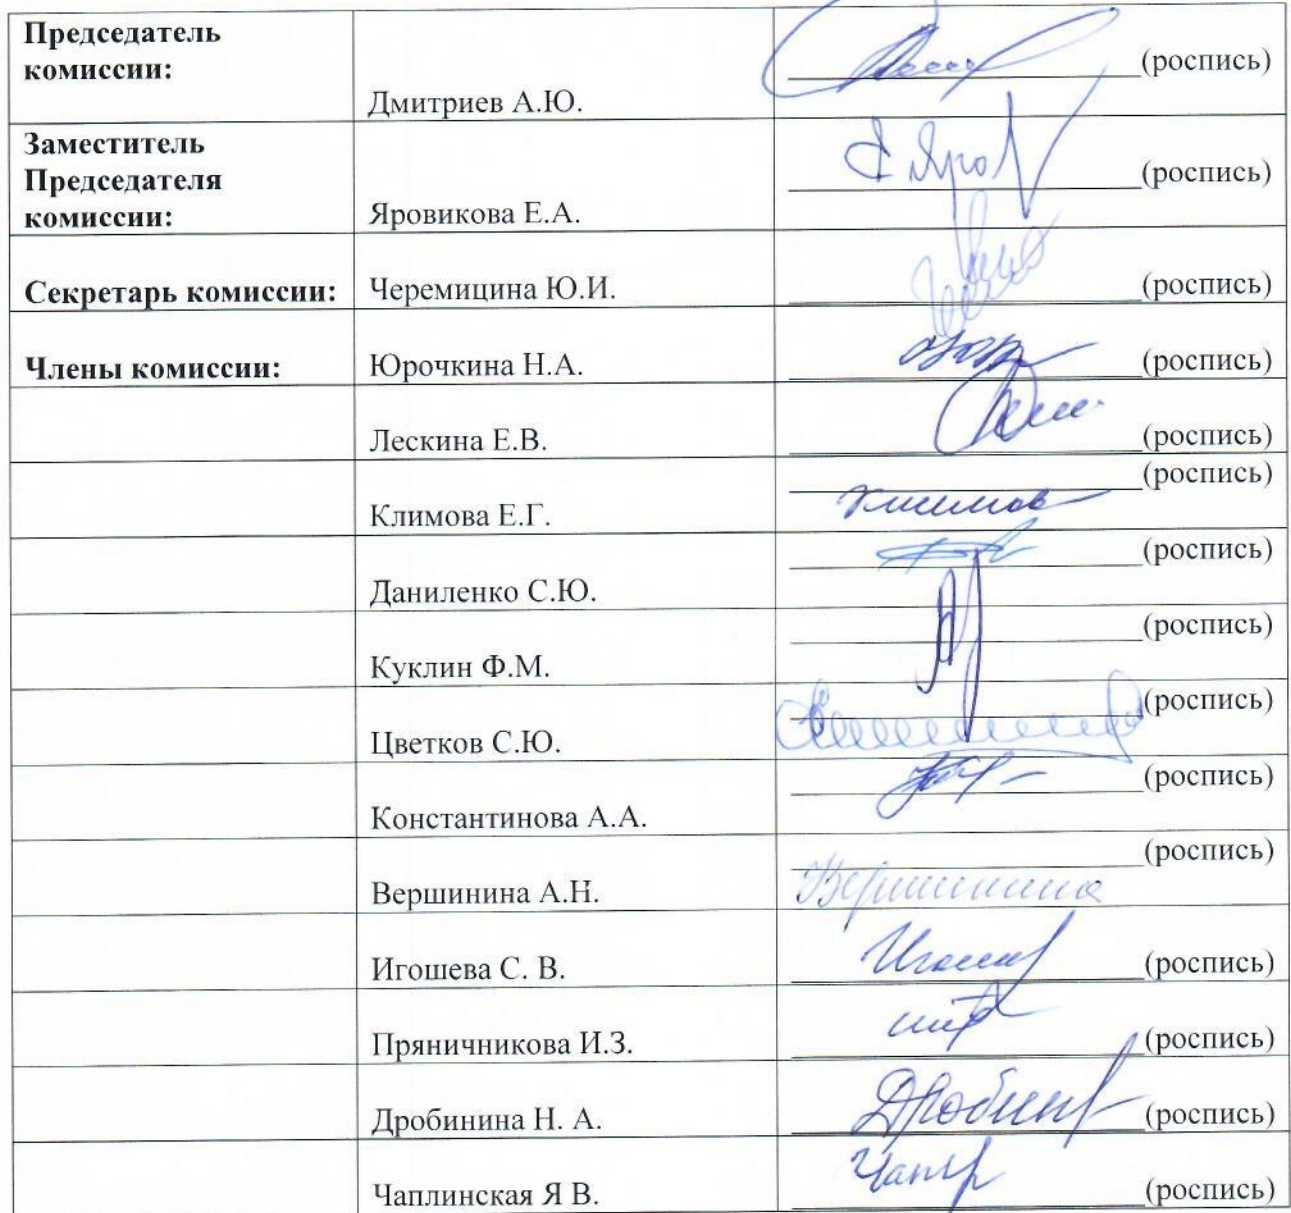 Председатель
комиссии:
Дмитриев А.Ю.
(роспись)
Заместитель
Председателя
комиссии:
Яровикова Е.А.
(роспись)
Секретарь комиссии:
Черемицина Ю.И.
(роспись)
Члены комиссии:
Юрочкина Н.А.
(роспись)
Лескина Е.В.
(роспись)
Климова Е.Г.
(роспись)
Даниленко С.Ю.
(роспись)
Куклин Ф.М.
(роспись)
Цветков С.Ю.
(роспись)
Константинова А.А.
(роспись)
Вершинина А.Н.
(роспись)
Вершинина
Игошева С. В.
(роспись)
Пряничникова И.З.
(роспись)
Дробинина Н. А.
(роспись)
Чаплинская Я В.
(роспись)